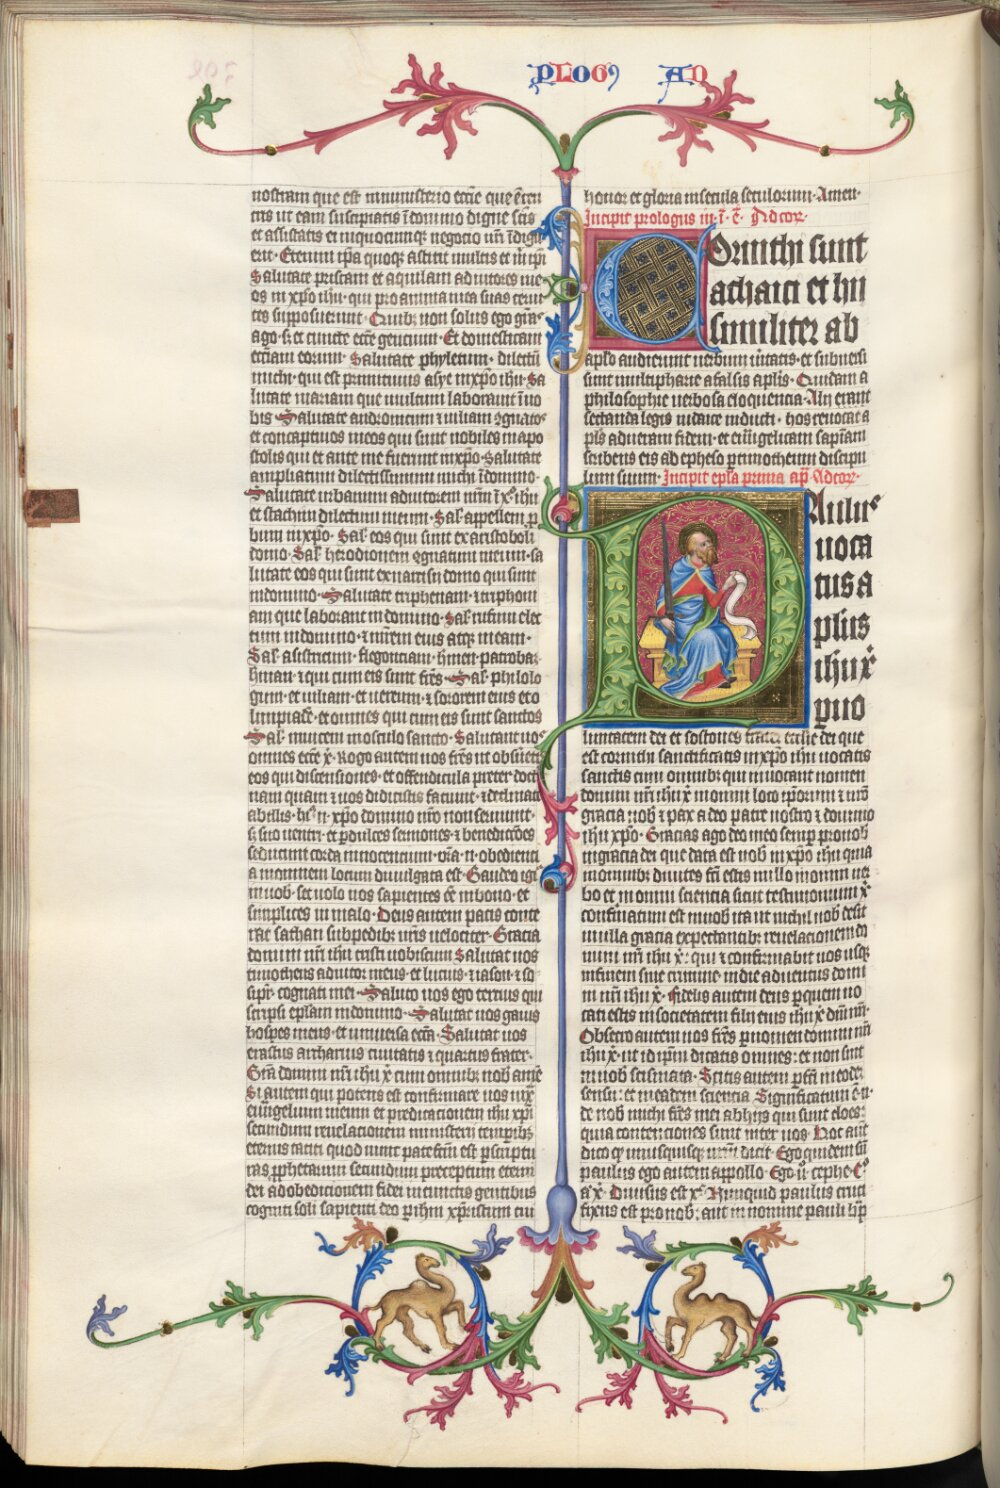 PLOG9 AD
nostram que est in ministerio eccīe que ē in cen
cris ut eam suscipiatis ī domino digne scīs
et assistatis ei in quocumq; negotio ur̄i īdigu
erit · Etenim ip̄a quoq; astitit multis et m̄ ip̄i
Salutate priscam et aquilam adiutores me
os in xp̄o ih̄u · qui pro anima mea suas ceruı
ces supposuerunt · Quib; non solus ego gr̄as
ago · s; et cuncte eccīe gencium · Et domesticam
ecc̄iam eorum · Salutate phyletum · dilectū
michi · qui est primitiuus asye in xp̄o ih̄u · Sa
lutate mariam que multum laborauit ī uo
bis · Salutate andronicum et iuliam cognatos
et concaptiuos meos qui sunt nobiles in apo
stolis qui et ante me fuerunt in xp̄o · Salutate
ampliatum dilectissimum michi ī domino ·
Salutate urbanum adiutorem nr̄m ī x̄ · ih̄u
et stachin dilectum meum · Sal̄ appellem p̄
bum in xp̄o · Sal̄ eos qui sunt ex aristoboli
domo · Sal̄ herodionem cognatum meum · sa
lutate eos qui sunt ex narcisci domo qui sunt
in domino · Salutate triphenam · ⁊ triphosi
am que laborant in domino · Sal̄ rufum elec
tum in domino · ⁊ matrem eius atq; meam ·
Sal̄ asistricum · flegontiam · hmen · patroban
hmian · ⁊ qui cum eis sunt fr̄es · Sal̄ philolo
gum · et iuliam · et nereum · ⁊ sororem eius et o
limpiadē · et omnes qui cum eis sunt sanctos
Sal̄ inuicem in osculo sancto · Salutant uos
omnes eccīe x̄ · Rogo autem uos fr̄es ut obseruet
eos qui discensiones · et offendicula preter doct
nam quam ⁊ uos didicistis faciunt · ⁊ declinate
ab illis · hi · n̄ · xp̄o domino nr̄o non seruiunt ·
s; suo uentri · et p dulces sermones · ⁊ benedictōes
seducunt corda innocentium · ur̄a · n̄ · obedienti
a in omnem locum diuulgata est · Gaudeo igr̄
in uob̄ · set uolo uos sapientes eē in bono · et
simplices in malo · Deus autem pacis conte
rat sathan sub pedib; ur̄is uelociter · Gracia
domini nr̄i ih̄u cristi uobiscum Salutat uos
timotheus adiutor meus · et lucius · ⁊ iason · ⁊ so
sip̄r · cognati mei · Saluto uos ego tercius qui
scripsi ep̄lam in domino · Salutat uos gaius
hospes meus · et uniuersa ecc̄a · Salutat uos
erastus archarius ciuitatis ⁊ quartus frater ·
Gr̄a domini nr̄i ih̄u x̄ cum omnib; uob̄ amē
Si autem qui potens est confirmare uos iux̄
euu̅gelium meum et predicationem ih̄u xp̄i
secundum reuelacionem ministerij temporib;
eternis taciti quod nunc patefcm̄ est p scriptu
ras p̄phetarum secundum preceptum eterni
dei ad obedicionem fidei in cunctis gentibus
cogniti soli sapienti deo p ih̄m xp̄istum cui
honor et gloria in secula seculorum · Amen ·
Incipit prologus in ī · ē · Ad cor ·
Corinthi sunt
achaici et hii
similiter ab
aplō audierunt uerbum ūitatis · et subuersi
sunt multipharie a falsis aplīs · Quidam a
philosophie uerbosa eloquencia · Alii erant
sectanda legis iudaice inducti · hos reuocat a
pl̄s ad ueram fidem · et eūu̅gelicam sap̄iam
scribens eis ab epheso p timotheum discipu
lum suum · Incipit ep̄la prima ap̄ Ad cor ·
Paulus
uoca
tus a
plūs
ih̄u x̄
p uo
luntatem dei et sostones fratr̄ eccl̄ie dei que
est corinthi sanctificatis in xp̄o ih̄u uocatis
sanctis cum omnib; qui inuocant nomen
domini nr̄i ih̄u x̄ in omni loco ip̄orum ⁊ nr̄o
gracia uob̄ ⁊ pax a deo patre nostro ⁊ domino
ih̄u xp̄o · Gracias ago deo meo semp pro uob̄
in gracia dei que data est uob̄ in xp̄o ih̄u quia
in omnib; diuites fc̄i estis in illo in omni uer
bo et in omni sciencia sicut testimonium x̄
confirmatum est in uob̄ ita ut nichil uob̄ desit
in ulla gracia expectantib; reuelacionem do
mini nr̄i ih̄u x̄ : qui ⁊ confirmabit uos usq;
in finem sine crimine in die aduentus domi
ni nr̄i ih̄u x̄ · fidelis autem deus p quem uo
cati estis in societatem filii eius ih̄u x̄ dn̄i nr̄i ·
Obsecro autem uos fr̄es p nomen domini nr̄i
ih̄u x̄ · ut id ip̄m dicatis omnes : et non sint
in uob̄ scismata · Scitis autem p̄fc̄i in eodē
sensu : et in eadem sciencia Significatum ē · n̄ ·
de uob̄ michi fr̄es mei ab hijs qui sunt cloes :
quia contenciones sunt inter uos · hoc aut̄
dico q̄ unusquisq; ur̄m dicit · Ego quidem sū
paulus ego autem appollo · Ego u̅ · cephe · Eº
a x̄ · Diuisus est x̄ˢ Nunquid paulus cruci
fixus est pro uob̄ : aut in nomine pauli bap̄